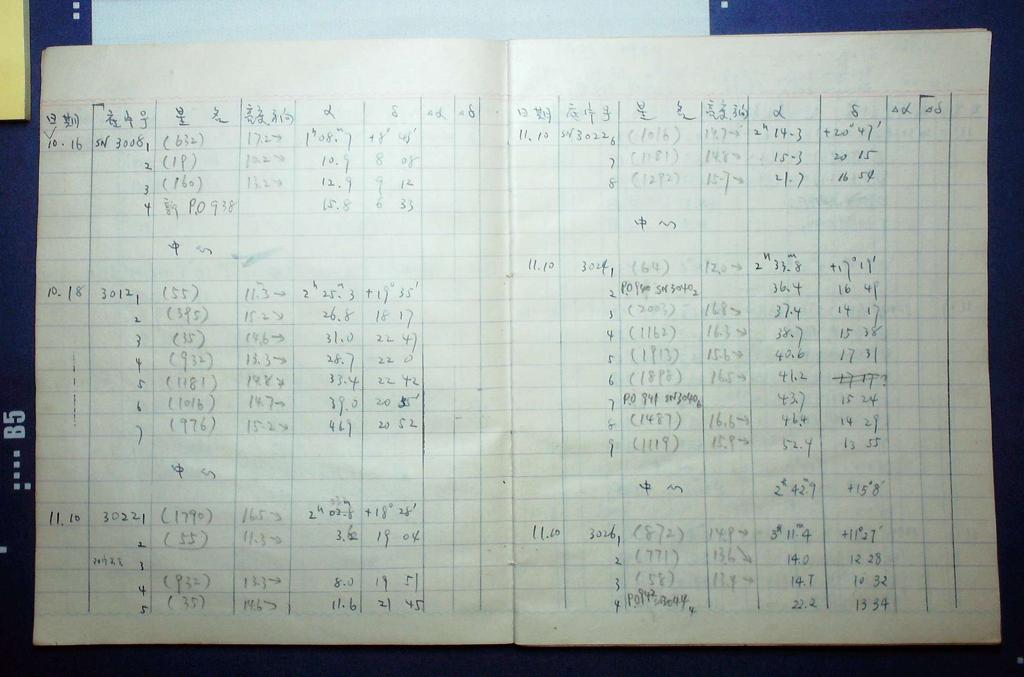 日期 底片号 星名 亮度方向 α δ Δα Δδ
10.16 SN 3008₁ (632) 17.2→ 1ʰ08.ᵐ7 +8° 43′
2 (19) 10.2→ 10.9 8 08
3 (860) 13.2→ 12.9 9 12
4 新 P.O 938 15.8 6 33
中心
10.18 3012₁ (55) 11.3→ 2ʰ 25.ᵐ3 +19° 35′
2 (395) 15.2→ 26.8 18 17
3 (35) 14.6→ 31.0 22 47
4 (932) 13.3→ 28.7 22 0
5 (1181) 14.8→ 33.4 22 42
6 (1016) 14.7→ 39.0 20 55
7 (976) 15.2→ 46.9 20 52
中心
11.10 3022₁ (1790) 16.5→ 2ʰ 02.8 +18° 28′
2 (55) 11.3→ 3.6 19 04
3
4 (932) 13.3→ 8.0 19 51
5 (35) 14.6→ 11.6 21 45
日期 底片号 星名 亮度方向 α δ Δα Δδ
11.10 SN 3022₆ (1016) 14.7→ 2ʰ 14.3 +20° 47′
7 (1181) 14.8→ 15.3 20 15
8 (1292) 15.7→ 21.7 16 54
中心
11.10 3024₁ (64) 12.0→ 2ʰ 33.ᵐ8 +17° 19′
2 P.O 940 SN3040₂ 36.4 16 49
3 (2003) 16.8→ 37.4 14 17
4 (1162) 16.3→ 38.7 15 38
5 (1913) 15.6→ 40.6 17 31
6 (1898) 16.5→ 41.2 17 17?
7 P.O 941 SN3040₆ 43.7 15 24
8 (1487) 16.6→ 46.4 14 29
9 (1119) 15.9→ 52.4 13 55
中心 2ʰ 42.ᵐ9 +15° 8′
11.10 3026₁ (872) 14.9→ 3ʰ 11.ᵐ4 +11° 27′
2 (771) 13.6 14.0 12 28
3 (58) 13.4→ 14.7 10 32
4 P.O 942 SN3044₄ 22.2 13 34
B5